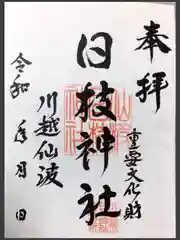 奉拝
重要文化財
日枝神社
川越仙波
令和 年月日